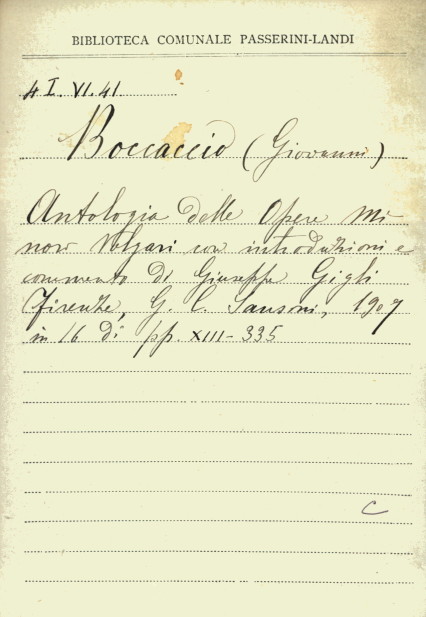 BIBLIOTECA COMUNALE PASSERINI-LANDI
4 I. VI. 41
Boccaccio (Giovanni)
Antologia delle Opere Mi-
nori Volgari con introduzioni e
commento di Giuseppe Gigli
Firenze, G. C. Sansoni, 1907
in 16 di pp. XIII-335
C